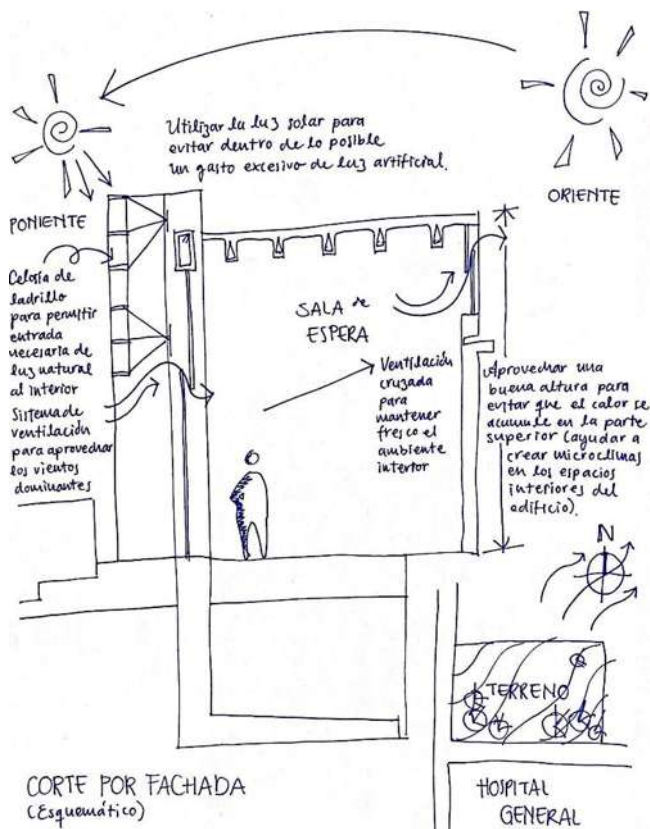 Utilizar la luz solar para
evitar dentro de lo posible
un gasto excesivo de luz artificial.
ORIENTE
PONIENTE
Celosía de
ladrillo
para permitir
entrada
necesaria de
luz natural
al interior
Sistema de
ventilación
para aprovechar
los vientos
dominantes
SALA de
ESPERA
Ventilación
cruzada
para
mantener
fresco el
ambiente
interior
Aprovechar una
buena altura para
evitar que el calor se
acumule en la parte
superior (ayudar a
crear microclimas
en los espacios
interiores del
edificio).
N
TERRENO
HOSPITAL
GENERAL
CORTE POR FACHADA
(Esquemático)